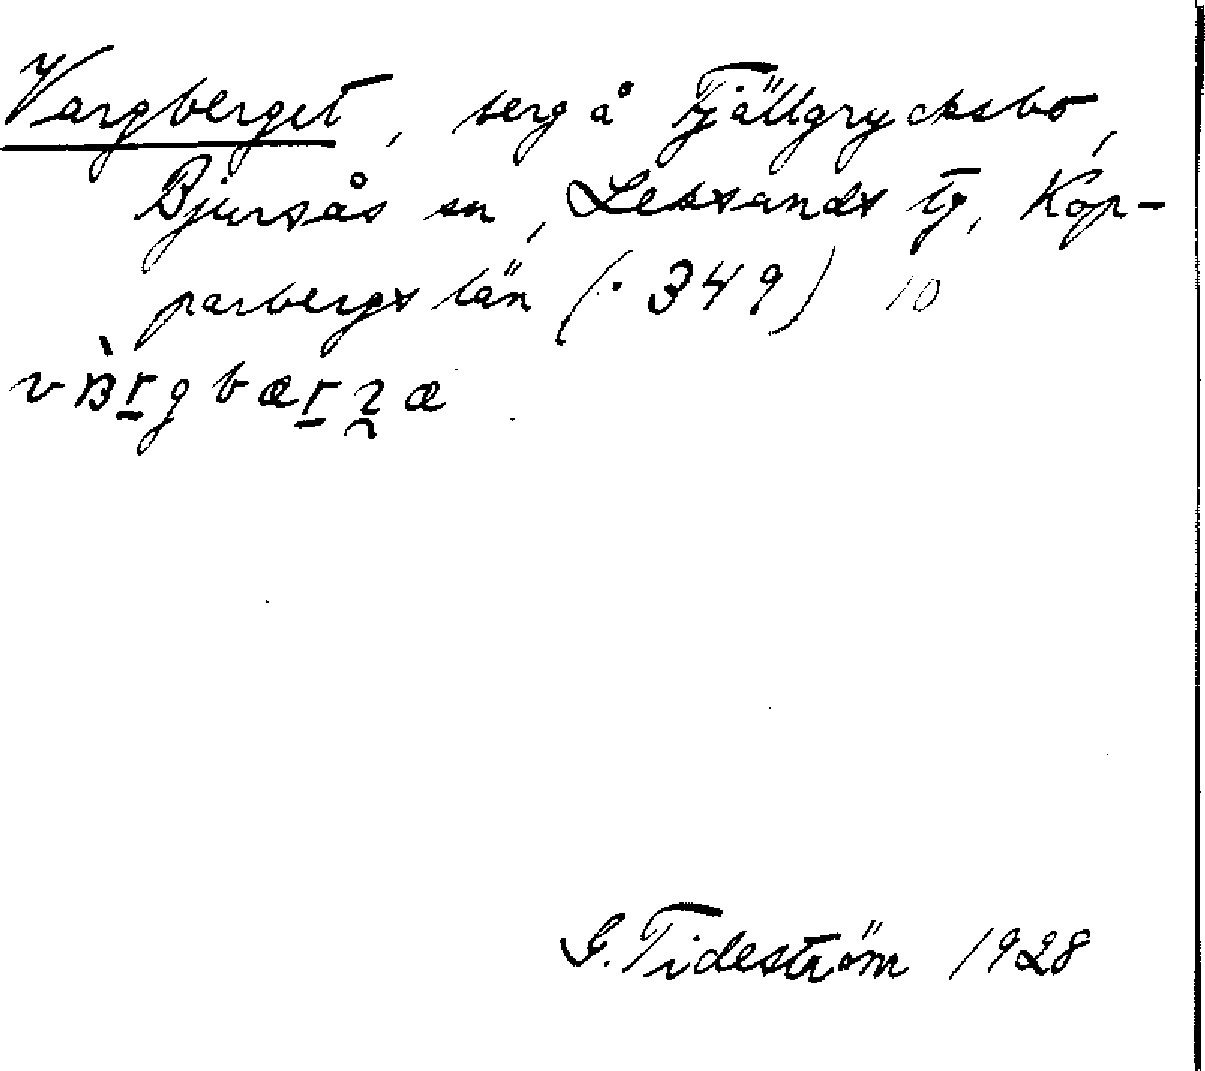 Vargberget, berg å Fjällgrycksbo,
Bjursås sn, Leksands tg, Kop-
parbergs län (· 349) 10
G. Tideström 1928